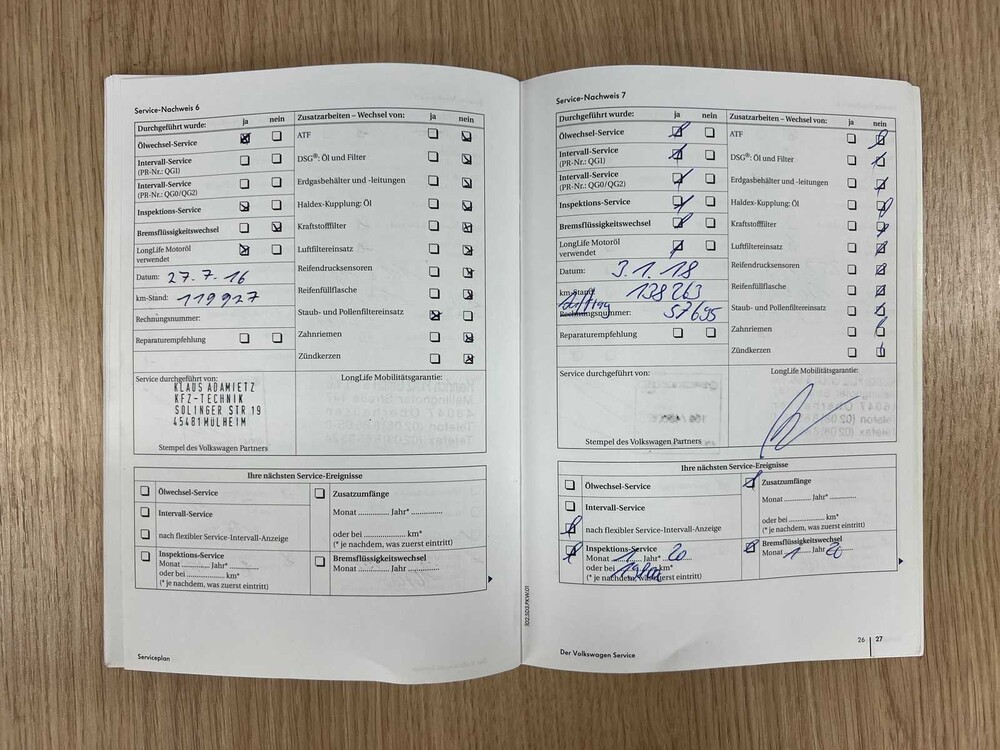 Service-Nachweis 6
Durchgeführt wurde: ja nein
Ölwechsel-Service
Intervall-Service
(PR-Nr.: QG1)
Intervall-Service
(PR-Nr.: QG0/QG2)
Inspektions-Service
Bremsflüssigkeitswechsel
LongLife Motoröl
verwendet
Datum: 27.7.16
km-Stand: 119927
Rechnungsnummer:
Reparaturempfehlung
Zusatzarbeiten – Wechsel von: ja nein
ATF
DSG®: Öl und Filter
Erdgasbehälter und -leitungen
Haldex-Kupplung: Öl
Kraftstofffilter
Luftfiltereinsatz
Reifendrucksensoren
Reifenfüllflasche
Staub- und Pollenfiltereinsatz
Zahnriemen
Zündkerzen
Service durchgeführt von:
KLAUS ADAMIETZ
KFZ-TECHNIK
SOLINGER STR 19
45481 MÜLHEIM
Stempel des Volkswagen Partners
LongLife Mobilitätsgarantie:
Ihre nächsten Service-Ereignisse
Ölwechsel-Service
Intervall-Service
nach flexibler Service-Intervall-Anzeige
Inspektions-Service
Monat ............ Jahr* ............
oder bei .................... km*
(* je nachdem, was zuerst eintritt)
Zusatzumfänge
Monat ............ Jahr* ............
oder bei .................... km*
(* je nachdem, was zuerst eintritt)
Bremsflüssigkeitswechsel
Monat ............ Jahr ............
Serviceplan
Service-Nachweis 7
Durchgeführt wurde: ja nein
Ölwechsel-Service
Intervall-Service
(PR-Nr.: QG1)
Intervall-Service
(PR-Nr.: QG0/QG2)
Inspektions-Service
Bremsflüssigkeitswechsel
LongLife Motoröl
verwendet
Datum: 3.1.18
km-Stand: 138263
Rechnungsnummer: 57695
Reparaturempfehlung
Zusatzarbeiten – Wechsel von: ja nein
ATF
DSG®: Öl und Filter
Erdgasbehälter und -leitungen
Haldex-Kupplung: Öl
Kraftstofffilter
Luftfiltereinsatz
Reifendrucksensoren
Reifenfüllflasche
Staub- und Pollenfiltereinsatz
Zahnriemen
Zündkerzen
Service durchgeführt von:
Stempel des Volkswagen Partners
LongLife Mobilitätsgarantie:
Ihre nächsten Service-Ereignisse
Ölwechsel-Service
Intervall-Service
nach flexibler Service-Intervall-Anzeige
Inspektions-Service
Monat 1 Jahr* 20
oder bei km*
(* je nachdem, was zuerst eintritt)
Zusatzumfänge
Monat ............ Jahr* ............
oder bei .................... km*
(* je nachdem, was zuerst eintritt)
Bremsflüssigkeitswechsel
Monat 1 Jahr 20
102.5D3.PKW.01
Der Volkswagen Service
26 | 27